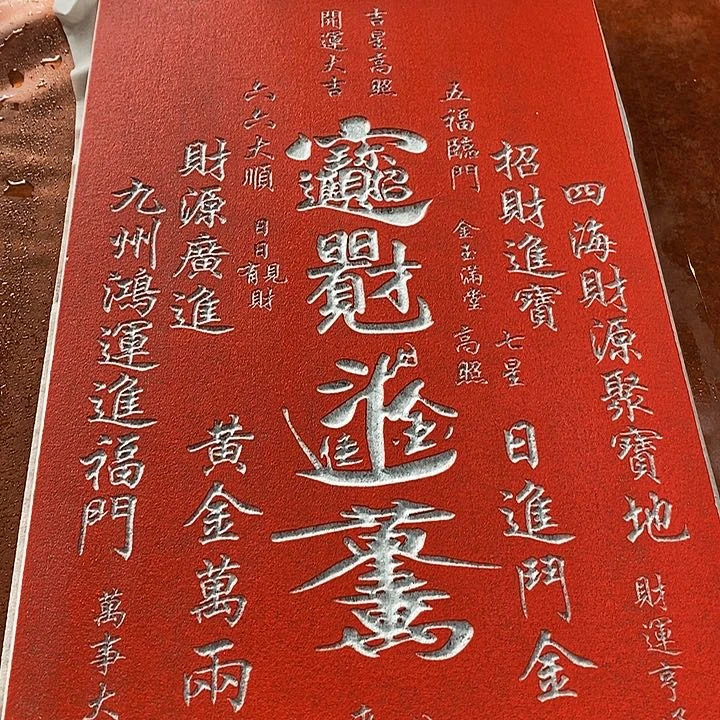 四海財源聚寶地
財運亨
招財進寶
日進鬥金
七星
高照
五福臨門
金玉滿堂
吉星高照
開運大吉
六六大順
日日見財
財源廣進
黃金萬兩
九州鴻運進福門
萬事大